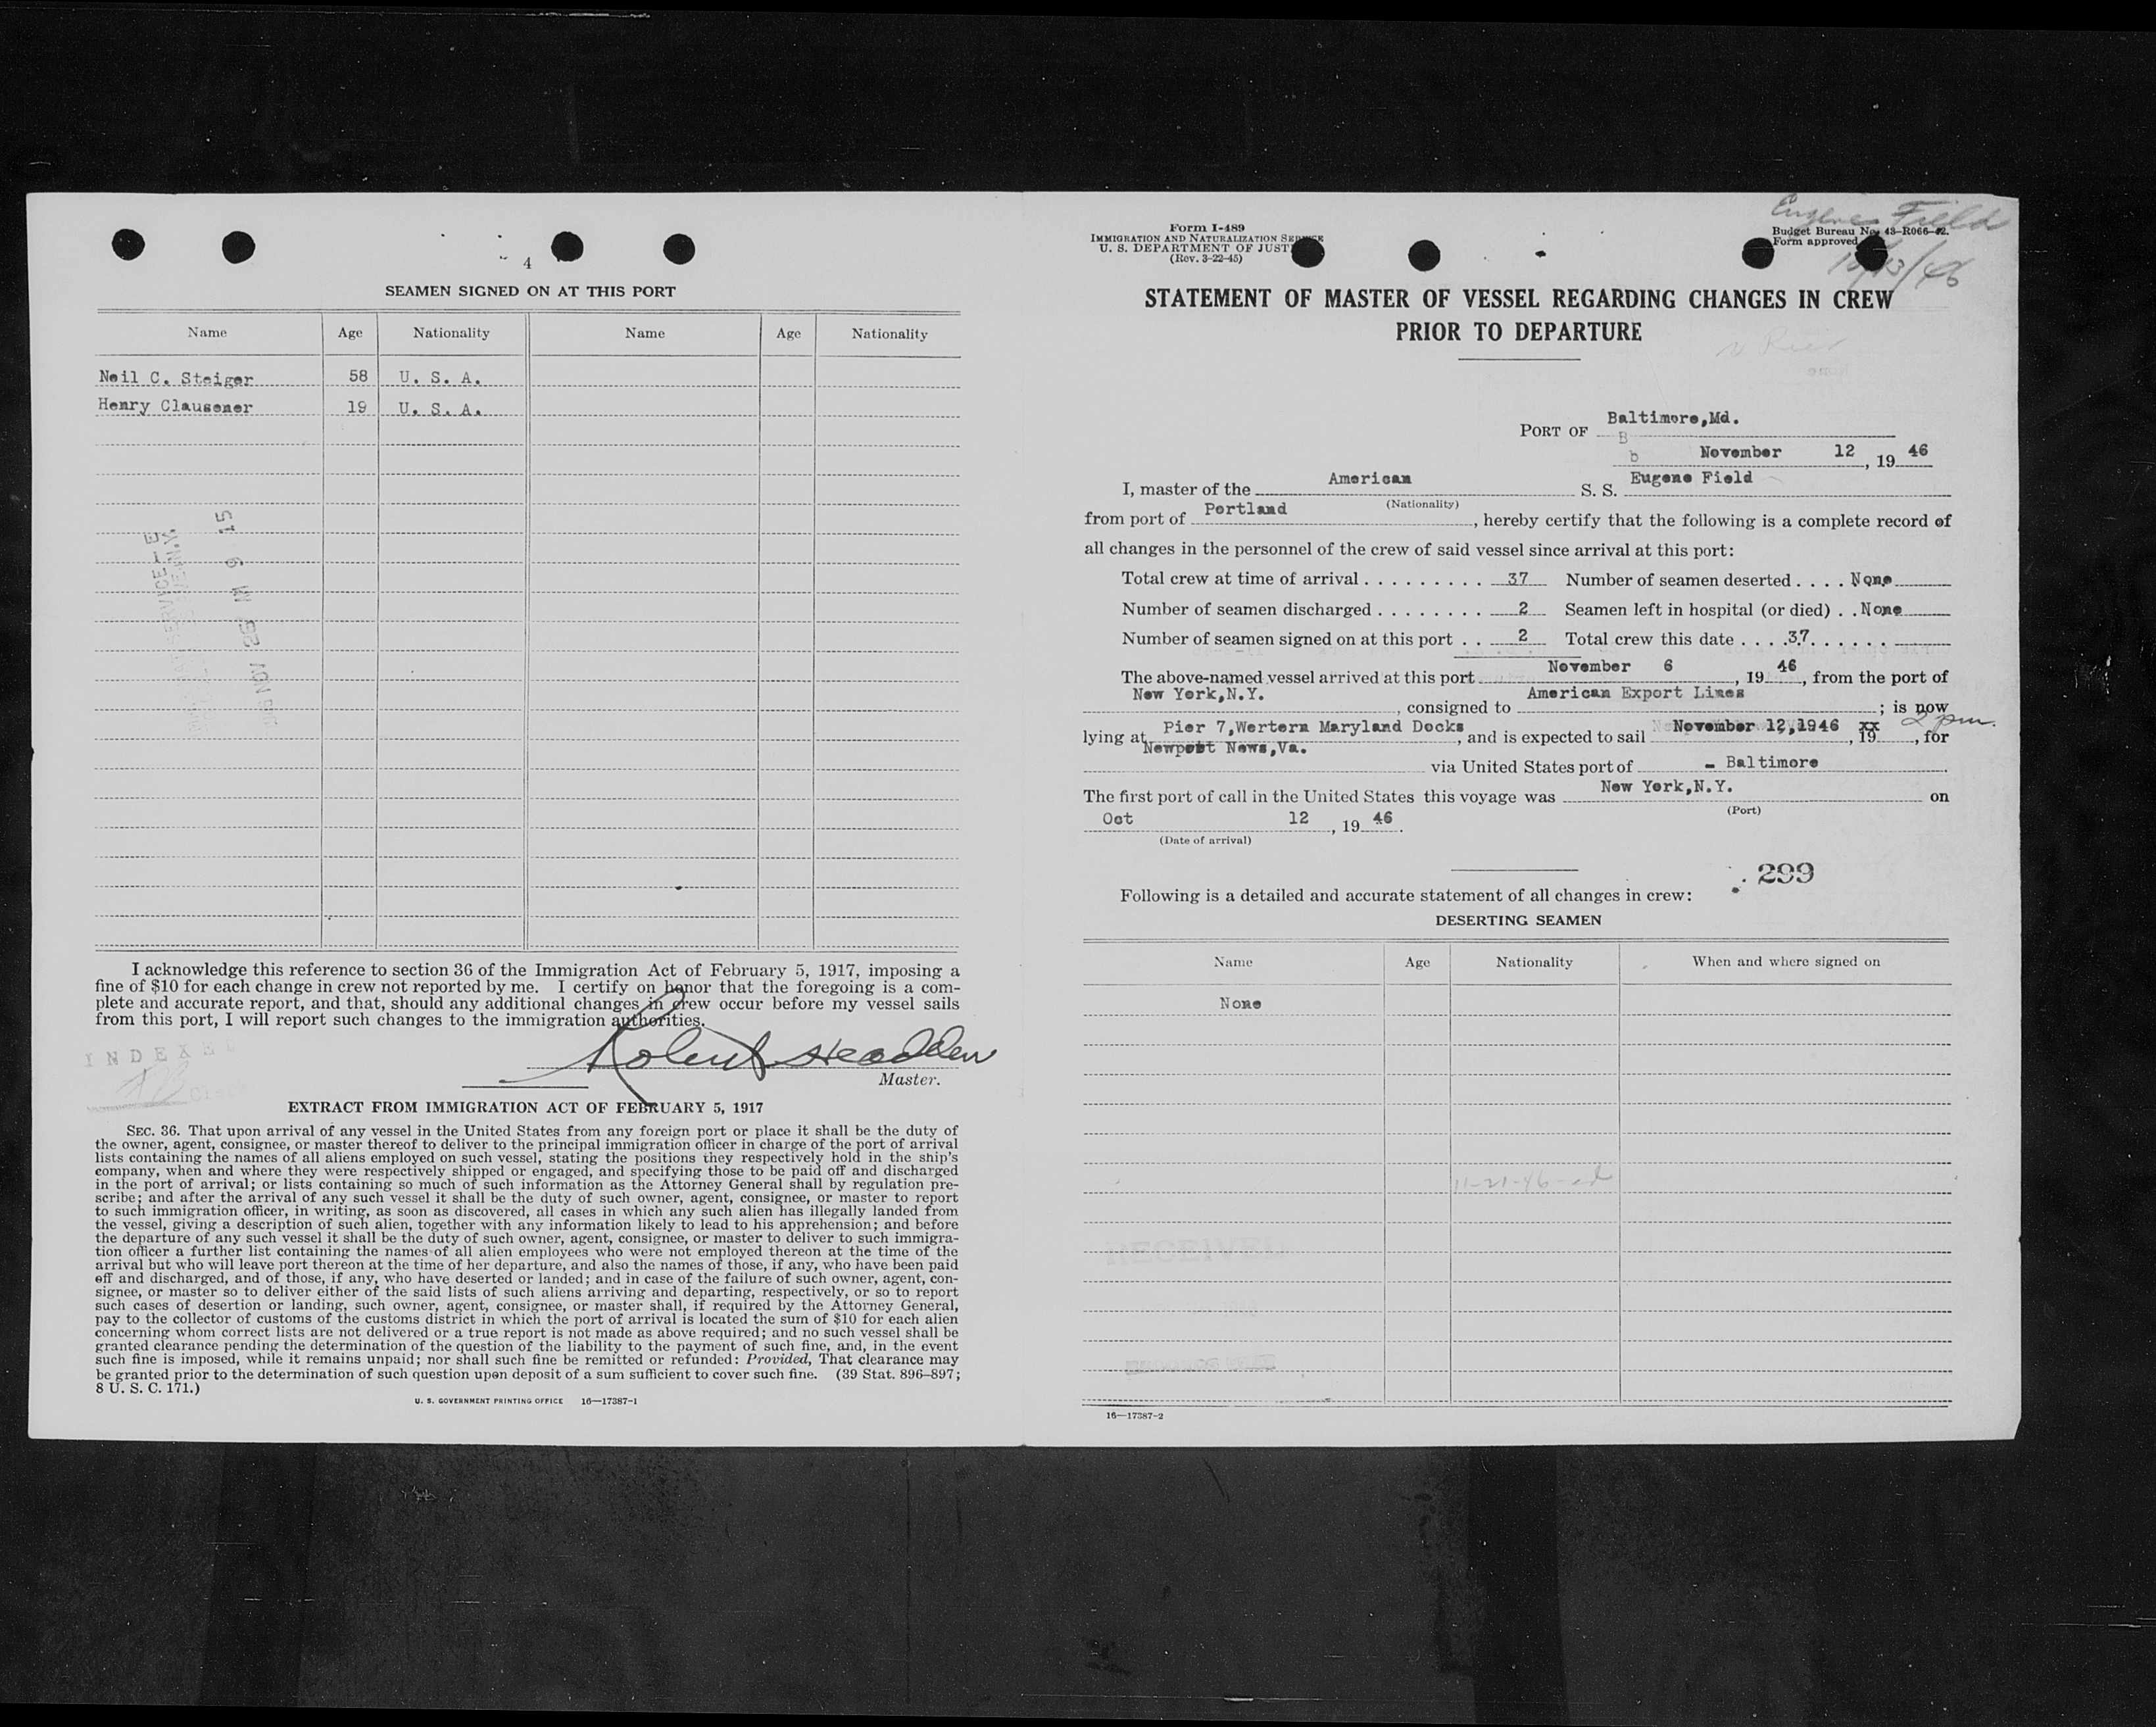 4
SEAMEN SIGNED ON AT THIS PORT
Name Age Nationality Name Age Nationality
Neil C. Steiger 58 U. S. A.
Henry Clausener 19 U. S. A.
I acknowledge this reference to section 36 of the Immigration Act of February 5, 1917, imposing a
fine of $10 for each change in crew not reported by me. I certify on honor that the foregoing is a com-
plete and accurate report, and that, should any additional changes in crew occur before my vessel sails
from this port, I will report such changes to the immigration authorities.
INDEXED
Robert Headden
Master.
EXTRACT FROM IMMIGRATION ACT OF FEBRUARY 5, 1917
SEC. 36. That upon arrival of any vessel in the United States from any foreign port or place it shall be the duty of
the owner, agent, consignee, or master thereof to deliver to the principal immigration officer in charge of the port of arrival
lists containing the names of all aliens employed on such vessel, stating the positions they respectively hold in the ship's
company, when and where they were respectively shipped or engaged, and specifying those to be paid off and discharged
in the port of arrival; or lists containing so much of such information as the Attorney General shall by regulation pre-
scribe; and after the arrival of any such vessel it shall be the duty of such owner, agent, consignee, or master to report
to such immigration officer, in writing, as soon as discovered, all cases in which any such alien has illegally landed from
the vessel, giving a description of such alien, together with any information likely to lead to his apprehension; and before
the departure of any such vessel it shall be the duty of such owner, agent, consignee, or master to deliver to such immigra-
tion officer a further list containing the names of all alien employees who were not employed thereon at the time of the
arrival but who will leave port thereon at the time of her departure, and also the names of those, if any, who have been paid
off and discharged, and of those, if any, who have deserted or landed; and in case of the failure of such owner, agent, con-
signee, or master so to deliver either of the said lists of such aliens arriving and departing, respectively, or so to report
such cases of desertion or landing, such owner, agent, consignee, or master shall, if required by the Attorney General,
pay to the collector of customs of the customs district in which the port of arrival is located the sum of $10 for each alien
concerning whom correct lists are not delivered or a true report is not made as above required; and no such vessel shall be
granted clearance pending the determination of the question of the liability to the payment of such fine, and, in the event
such fine is imposed, while it remains unpaid; nor shall such fine be remitted or refunded: Provided, That clearance may
be granted prior to the determination of such question upon deposit of a sum sufficient to cover such fine. (39 Stat. 896–897;
8 U. S. C. 171.)
U. S. GOVERNMENT PRINTING OFFICE 16—17387-1
Form I-489
IMMIGRATION AND NATURALIZATION SERVICE
U. S. DEPARTMENT OF JUSTI
(Rev. 3-22-45)
Eugene Field
Budget Bureau No. 43-R066-42.
Form approved
STATEMENT OF MASTER OF VESSEL REGARDING CHANGES IN CREW
PRIOR TO DEPARTURE
PORT OF Baltimore,Md.
November 12, 19 46
I, master of the American S. S. Eugene Field
(Nationality)
from port of Portland, hereby certify that the following is a complete record of
all changes in the personnel of the crew of said vessel since arrival at this port:
Total crew at time of arrival . . . . . . . . . 37 Number of seamen deserted . . . . None
Number of seamen discharged . . . . . . . . 2 Seamen left in hospital (or died) . . None
Number of seamen signed on at this port . . 2 Total crew this date . . . . 37 . . . . . .
The above-named vessel arrived at this port November 6, 19 46, from the port of
New York,N.Y., consigned to American Export Lines; is now
lying at Pier 7,Wertern Maryland Docks, and is expected to sail November 12,1946 19 xx, 2 pm. for
Newport News,Va. via United States port of - Baltimore
The first port of call in the United States this voyage was New York,N.Y. on
(Port)
Oct 12, 19 46.
(Date of arrival)
299
Following is a detailed and accurate statement of all changes in crew:
DESERTING SEAMEN
Name Age Nationality When and where signed on
None
11-21-46-ed
RECEIVED
16—17387-2